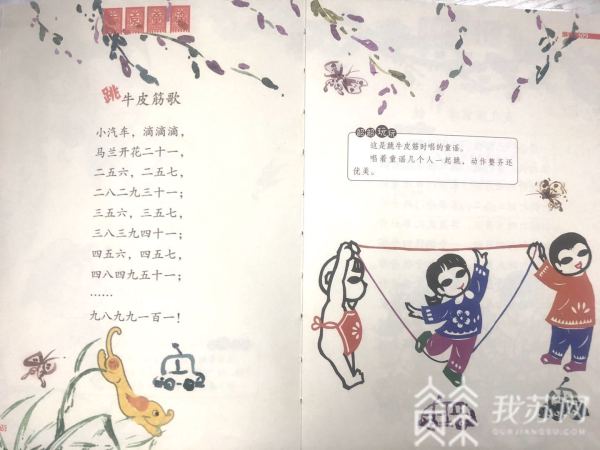 跳牛皮筋歌
小汽车，滴滴滴，
马兰开花二十一，
二五六，二五七，
二八二九三十一；
三五六，三五七，
三八三九四十一；
四五六，四五七，
四八四九五十一；
……
九八九九一百一！
这是跳牛皮筋时唱的童谣。
唱着童谣几个人一起跳，动作整齐还
优美。
我苏网
OURJIANGSU.COM